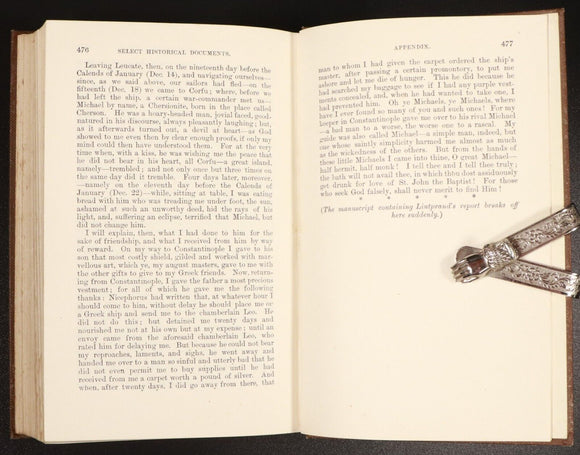 476 SELECT HISTORICAL DOCUMENTS.
Leaving Leucate, then, on the nineteenth day before the
Calends of January (Dec. 14), and navigating ourselves—
since, as we said above, our sailors had fled—on the
fifteenth (Dec. 18) we came to Corfu; where, before we
had left the ship, a certain war-commander met us—
Michael by name, a Chersionite, born in the place called
Cherson. He was a hoary-headed man, jovial faced, good-
natured in his discourse, always pleasantly laughing; but,
as it afterwards turned out, a devil at heart—as God
showed to me even then by clear enough proofs, if only my
mind could then have understood them. For at the very
time when, with a kiss, he was wishing me the peace that
he did not bear in his heart, all Corfu—a great island,
namely—trembled; and not only once but three times on
the same day did it tremble. Four days later, moreover,
—namely on the eleventh day before the Calends of
January (Dec. 22)—while, sitting at table, I was eating
bread with him who was treading me under foot, the sun,
ashamed at such an unworthy deed, hid the rays of his
light, and, suffering an eclipse, terrified that Michael, but
did not change him.
I will explain, then, what I had done to him for the
sake of friendship, and what I received from him by way
of reward. On my way to Constantinople I gave to his
son that most costly shield, gilded and worked with mar-
vellous art, which ye, my august masters, gave to me with
the other gifts to give to my Greek friends. Now, return-
ing from Constantinople, I gave the father a most precious
vestment; for all of which he gave me the following
thanks: Nicephorus had written that, at whatever hour I
should come to him, without delay he should place me on
a Greek ship and send me to the chamberlain Leo. He
did not do this; but detained me twenty days and
nourished me not at his own but at my expense; until an
envoy came from the aforesaid chamberlain Leo, who
rated him for delaying me. But because he could not bear
my reproaches, laments, and sighs, he went away and
handed me over to a man so sinful and utterly bad that he
did not even permit me to buy supplies until he had
received from me a carpet worth a pound of silver. And
when, after twenty days, I did go away from there, that
APPENDIX. 477
man to whom I had given the carpet ordered the ship's
master, after passing a certain promontory, to put me
ashore and let me die of hunger. This he did because he
had searched my baggage to see if I had any purple vest-
ments concealed, and, when he had wanted to take one, I
had prevented him. Oh ye Michaels, ye Michaels, where
have I ever found so many of you and such ones! For my
keeper in Constantinople gave me over to his rival Michael
—a bad man to a worse, the worse one to a rascal. My
guide was also called Michael—a simple man, indeed, but
one whose saintly simplicity harmed me almost as much
as the wickedness of the others. But from the hands of
these little Michaels I came into thine, O great Michael—
half hermit, half monk! I tell thee and I tell thee truly;
the bath will not avail thee, in which thou dost assiduously
get drunk for love of St. John the Baptist! For those
who seek God falsely, shall never merit to find Him!
* * * * *
(The manuscript containing Liutprand's report breaks off
here suddenly.)